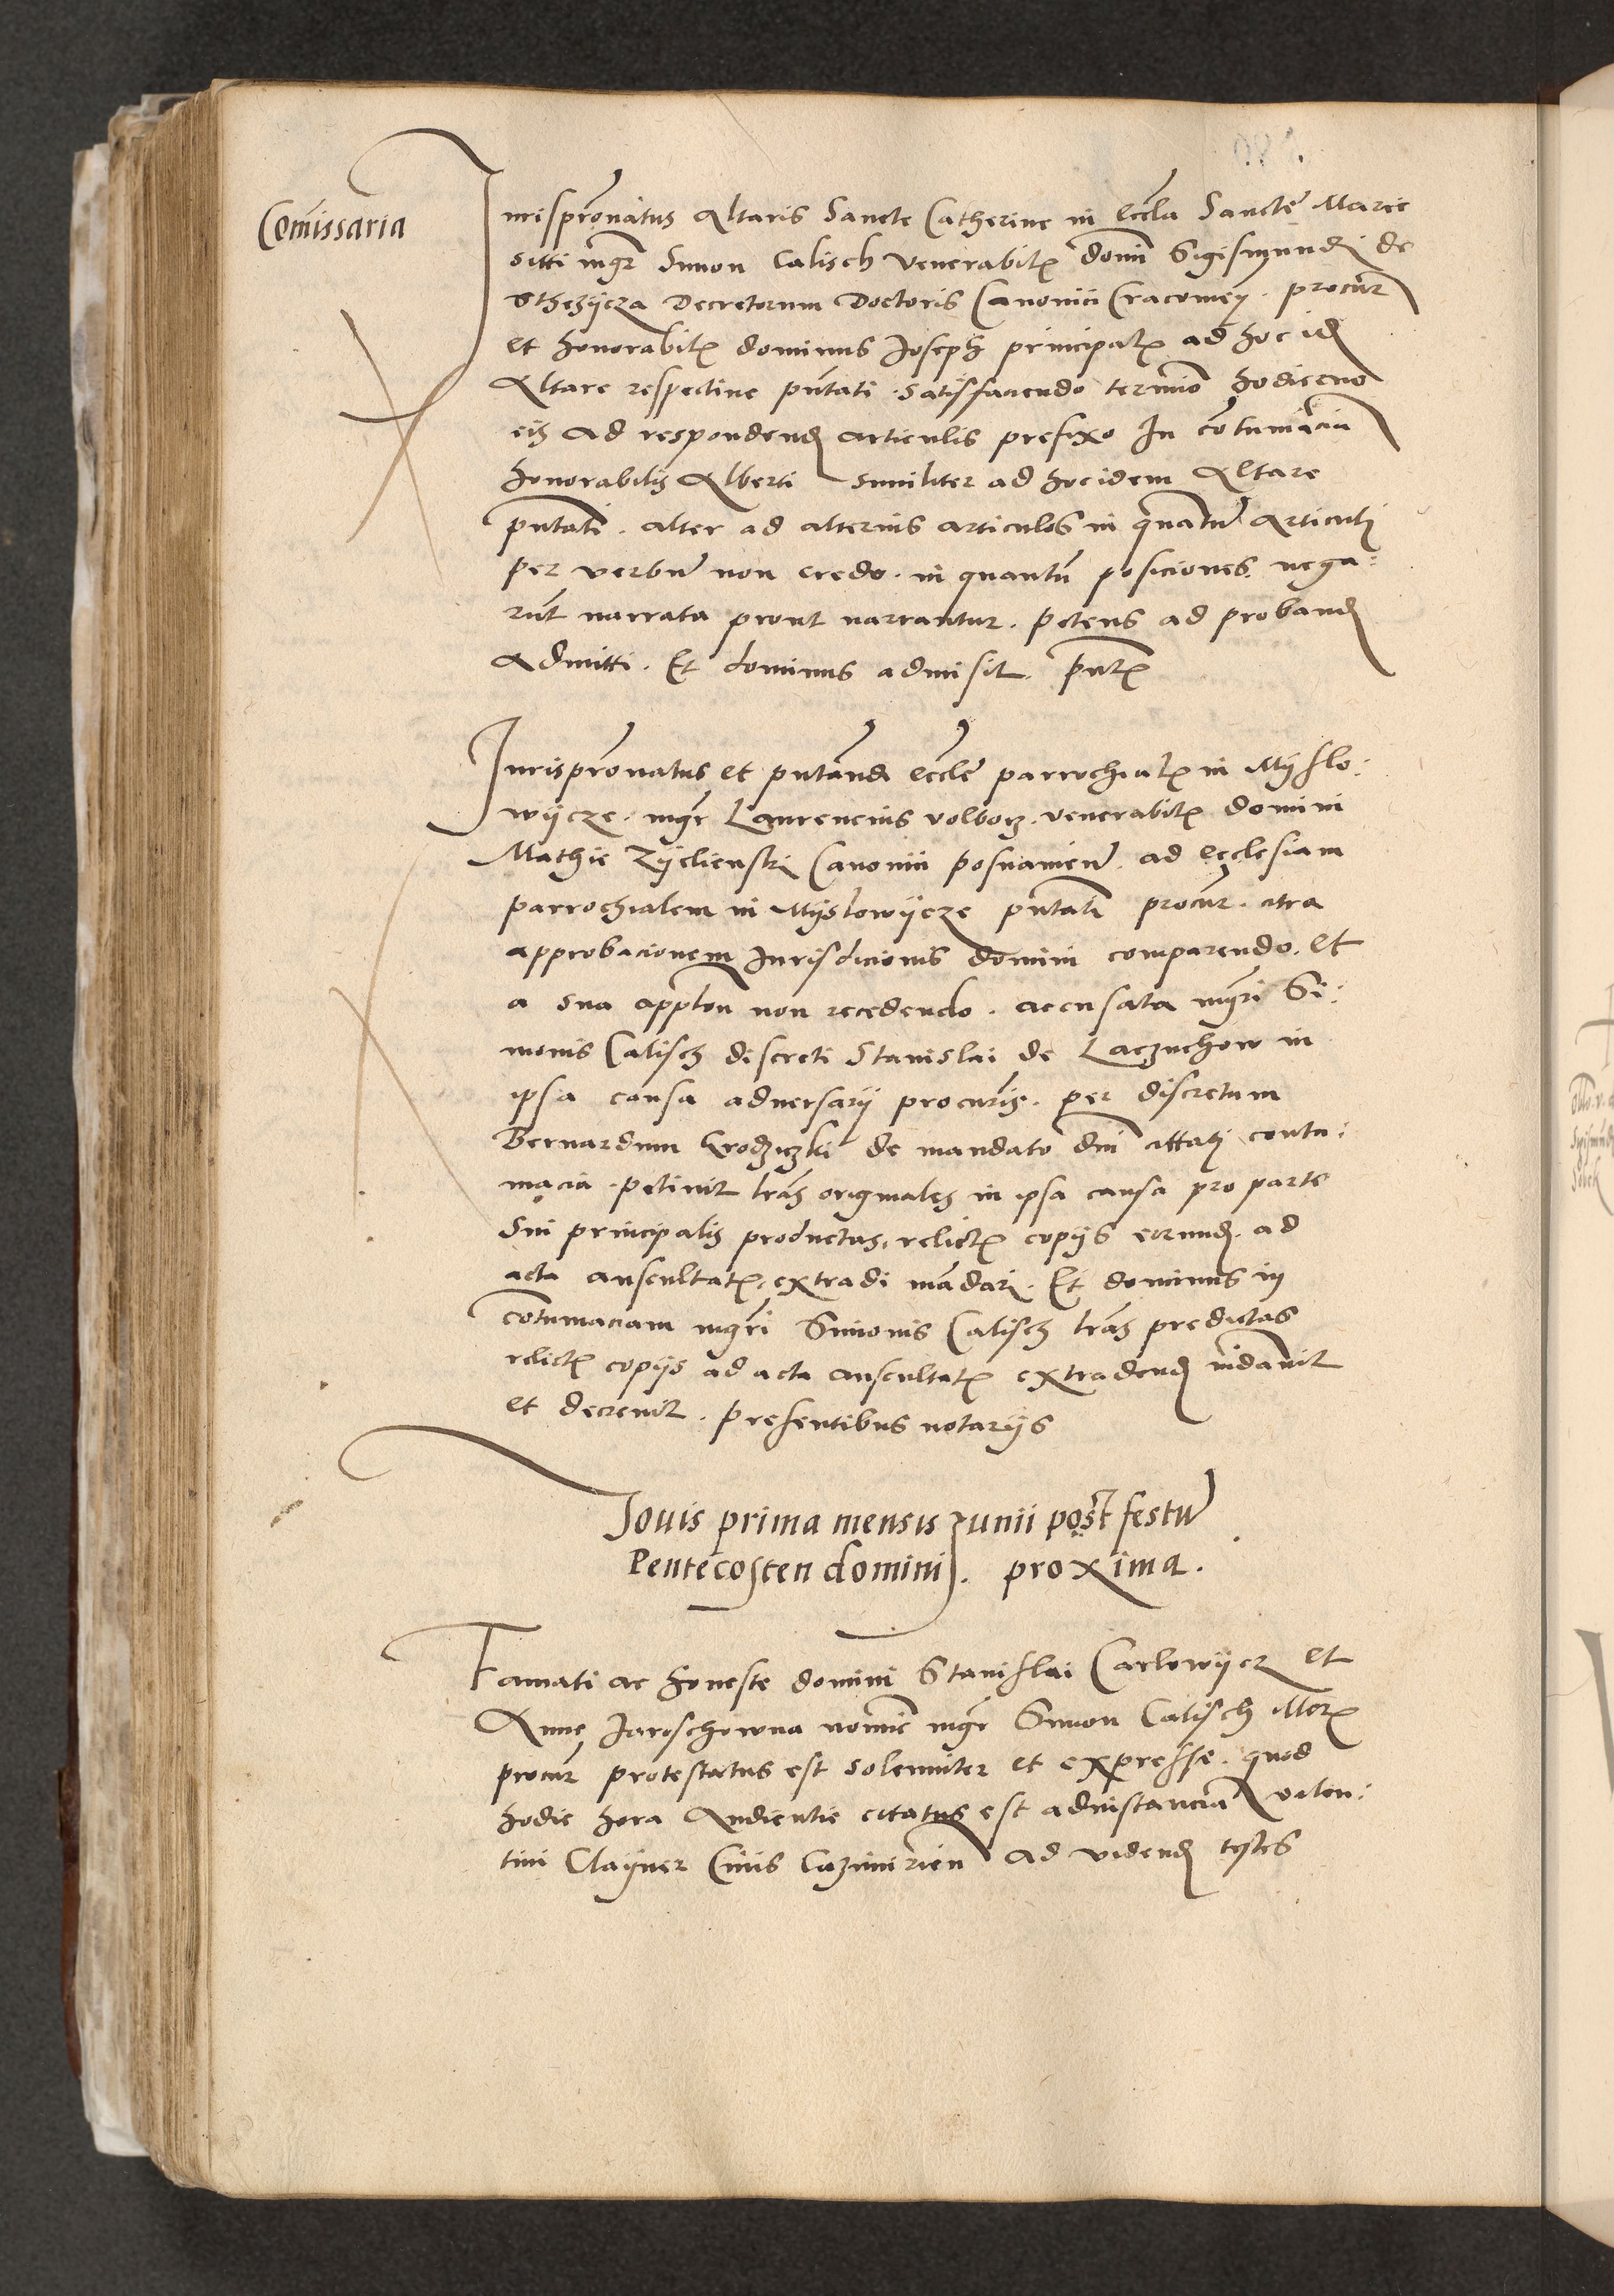 Comissaria
Jurispronatus Altaris Sancte Catherine in eccla Sancte Marie
sitti mgr Simon Calisch Venerabilis domi Sigismundi de
Sthezycza Decretorum Doctoris Canonici Cracovien. procur
et honorabilis dominus Joseph principalis ad hoc id
Altare respective pntati. satisfaciendo termio hodierno
eis ad respondend articulis prefixo In cotumacia
honorabilis Alberti similiter ad hoc idem Altare
pntati. alter ad alterius articulos in quantu Articuli
per verbu non credo. in quantu posiciones. nega:
runt narrata prout narrantur. petens ad proband
Admitti. Et dominus admisit. pntibus
Jurispronatus et pntandi eccle parrochialis in Myslo:
wycze. mgr Laurencius Wolborz. venerabilis domini
Mathie Zyelienski Canonici posnanien. ad ecclesiam
parrochialem in Myslowycze pntati procur. citra
approbacionem Jurisdicionis domini comparendo. et
a sua applon non recedendo. accusata mgri Si:
monis Calisch discreti Stanislai de Laczuchow in
ipsa causa adversarij procuris. per discretum
Bernardum Grodziczki de mandato dni cittati contu:
macia. petivit lras originales in ipsa causa pro parte
sui principalis productas, relictis copijs earund. ad
acta auscultatis. extradi madari. Et dominus in
cotumaciam mgri Simonis Calisch lras predictas
relictis copijs ad acta auscultatis extradend madavit
et decrevit. presentibus notarijs
Jouis prima mensis Junii post festu
Pentecosten domini. proxima.
Famati ac honeste domini Stanislai Carlowycz et
Anne Jaroschowna nomie mgr Simon Calisch Illorum
procur protestatus est solemniter et expresse. quod
hodie hora Audientie citatus est ad instancia valen:
tini Clayner Civis Cazimirien ad videnд testes